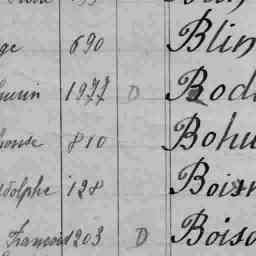 ge 690 Blin
uerin 1977 D Bod
honse 810 Bohu
dolphe 128 Bois
François 203 D Boiso